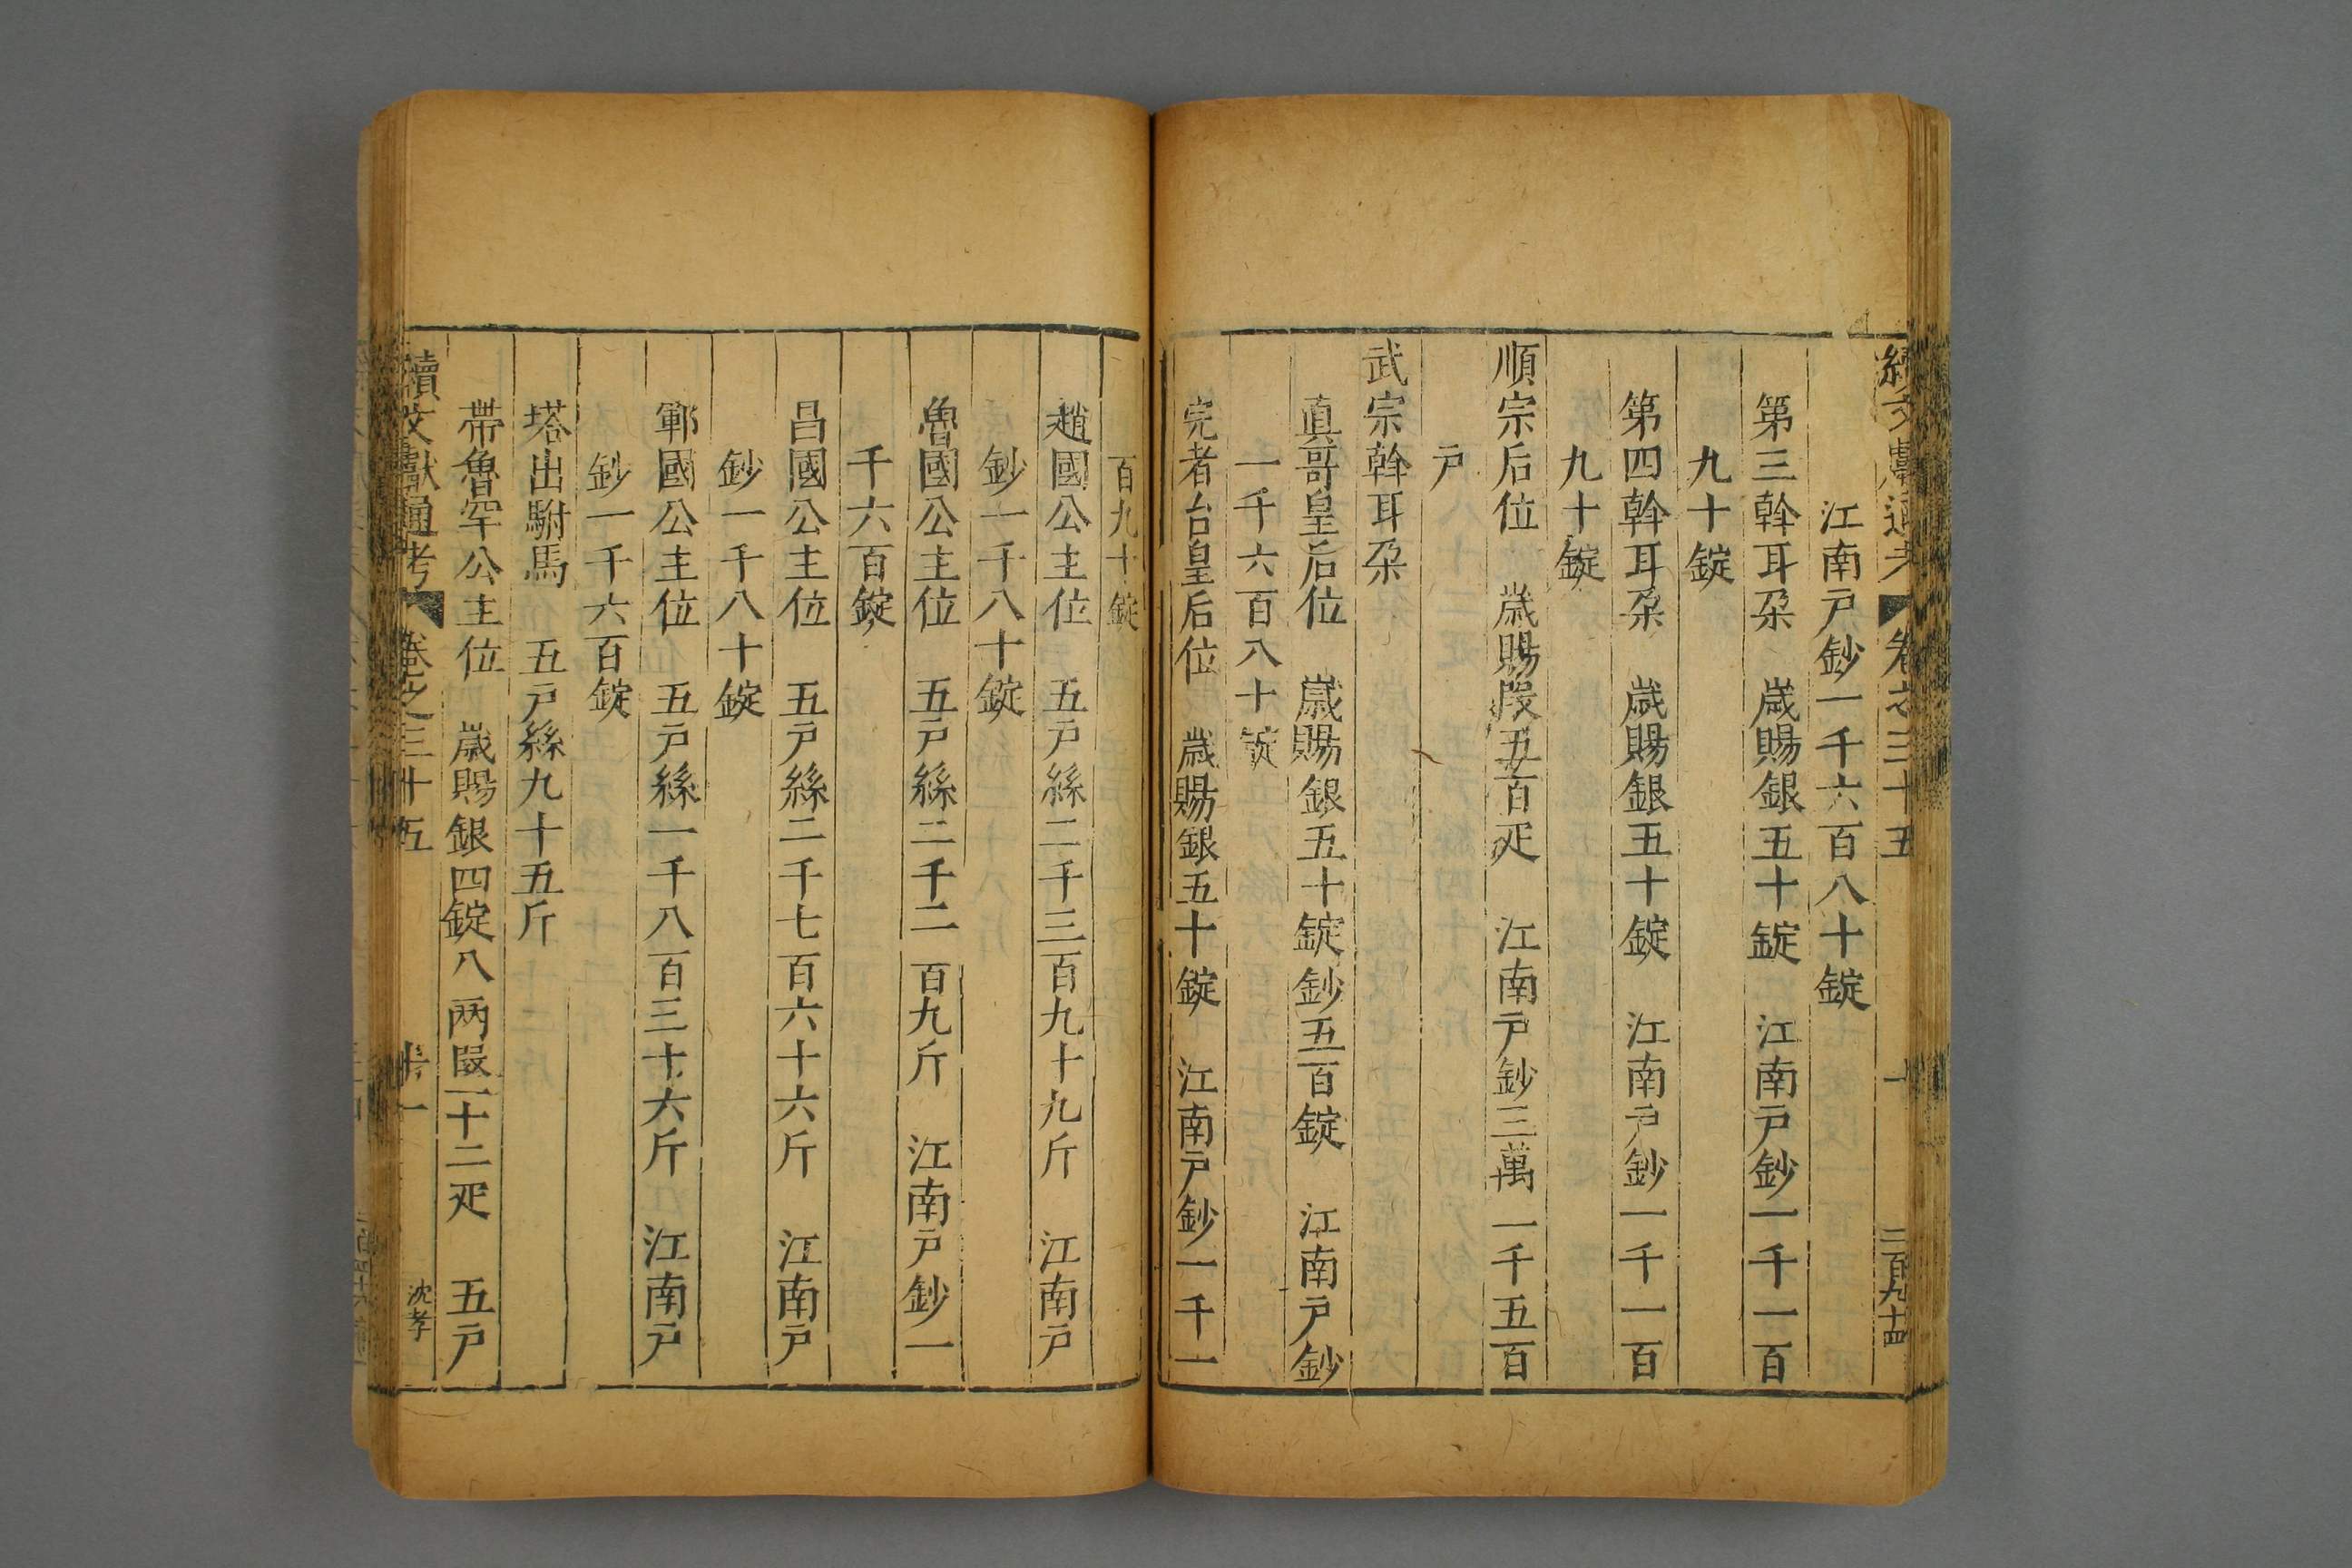 續文獻通考 卷之三十五 十 三百九十四
江南戶鈔一千六百八十錠
第三斡耳朶 歲賜銀五十錠 江南戶鈔一千一百
九十錠
第四斡耳朶 歲賜銀五十錠 江南戶鈔一千一百
九十錠
順宗后位 歲賜段五百疋 江南戶鈔三萬一千五百
戶
武宗斡耳朶
眞哥皇后位 歲賜銀五十錠鈔五百錠 江南戶鈔
一千六百八十錠
完者台皇后位 歲賜銀五十錠 江南戶鈔一千一
百九十錠
趙國公主位 五戶絲二千三百九十九斤 江南戶
鈔一千八十錠
魯國公主位 五戶絲二千二百九斤 江南戶鈔一
千六百錠
昌國公主位 五戶絲二千七百六十六斤 江南戶
鈔一千八十錠
鄆國公主位 五戶絲一千八百三十六斤 江南戶
鈔一千六百錠
塔出駙馬 五戶絲九十五斤
帶魯罕公主位 歲賜銀四錠八两段一十二疋 五戶
續文獻通考 卷之三十五 十一 沈孝